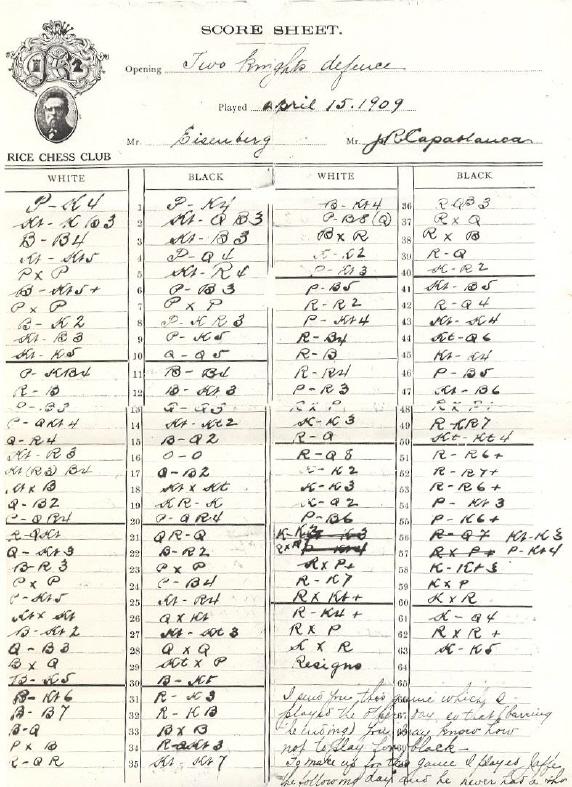 SCORE SHEET.
Opening Two Knights defence
Played April 15. 1909
Mr. Eisenberg Mr. J R Capablanca
RICE CHESS CLUB
WHITE BLACK WHITE BLACK
P-K4 1 P-K4
Kt-KB3 2 Kt-QB3
B-B4 3 Kt-B3
Kt-Kt5 4 P-Q4
PxP 5 Kt-R4
B-Kt5+ 6 P-B3
PxP 7 PxP
B-K2 8 P-KR3
Kt-B3 9 P-K5
Kt-K5 10 Q-Q5
P-KB4 11 B-B4
R-B 12 B-Kt3
P-B3 13 Q-Q3
P-QKt4 14 Kt-Kt2
Q-R4 15 B-Q2
Kt-R3 16 O-O
Kt(R3)B4 17 Q-B2
KtxB 18 KtxKt
Q-B2 19 KR-K
P-QR4 20 P-QR4
R-QKt 21 QR-Q
Q-Kt3 22 B-R2
B-R3 23 PxP
PxP 24 P-B4
P-Kt5 25 Kt-R4
KtxKt 26 QxKt
B-Kt2 27 Kt-Kt3
Q-B3 28 QxQ
BxQ 29 KtxP
B-K5 30 B-K5
B-Kt6 31 R-K3
B-B7 32 R-KB
B-Q 33 BxB
PxB 34 R-Kt3
R-QR 35 Kt-Kt7
B-Kt4 36 R-QB3
P-B8(Q) 37 RxQ
BxR 38 RxB
K-K2 39 R-Q
P-Kt3 40 K-R2
P-B5 41 Kt-B5
R-R2 42 R-Q4
P-Kt4 43 Kt-K4
R-B4 44 Kt-Q6
R-B 45 Kt-K4
R-R4 46 P-B5
P-R3 47 Kt-B6
RxP 48 RxP+
K-K3 49 R-KR7
R-Q 50 Kt-Kt4
R-Q8 51 R-R6+
K-K2 52 R-R7+
K-K3 53 R-R6+
K-Q2 54 P-Kt3
P-B6 55 P-K6+
K-K2 56 R-Q7 Kt-K3
RxR 57 RxP+ P-Kt4
RxP+ 58 K-Kt3
R-K7 59 KxP
RxKt+ 60 KxR
R-K4+ 61 K-Q4
RxP 62 RxR+
KxR 63 K-K5
Resigns 64
I send you this game which I
played the other day so that (barring
) you may know how
not to play for black-
To make up for this game I played Jaffe
the following day and he never had a sho